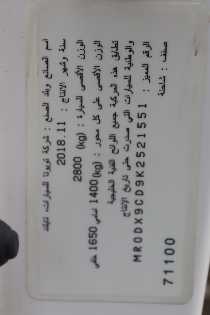 اسم الصانع وبلد الصنع : شركة تويوتا للسيارات، تايلاند
سنة وشهر الإنتاج : 2018 . 11
الوزن الأقصى للسيارة : 2800 (kg)
الوزن الأقصى على كل محور : 1400 (kg) أمامي 1650 خلفي
تطابق هذه المركبة جميع اللوائح الفنية الخليجية
والوطنية للسيارات التي صدرت حتى تاريخ الإنتاج
الرقم المميز : MR0DX9CD9K2521551
صنف : شاحنة
71100